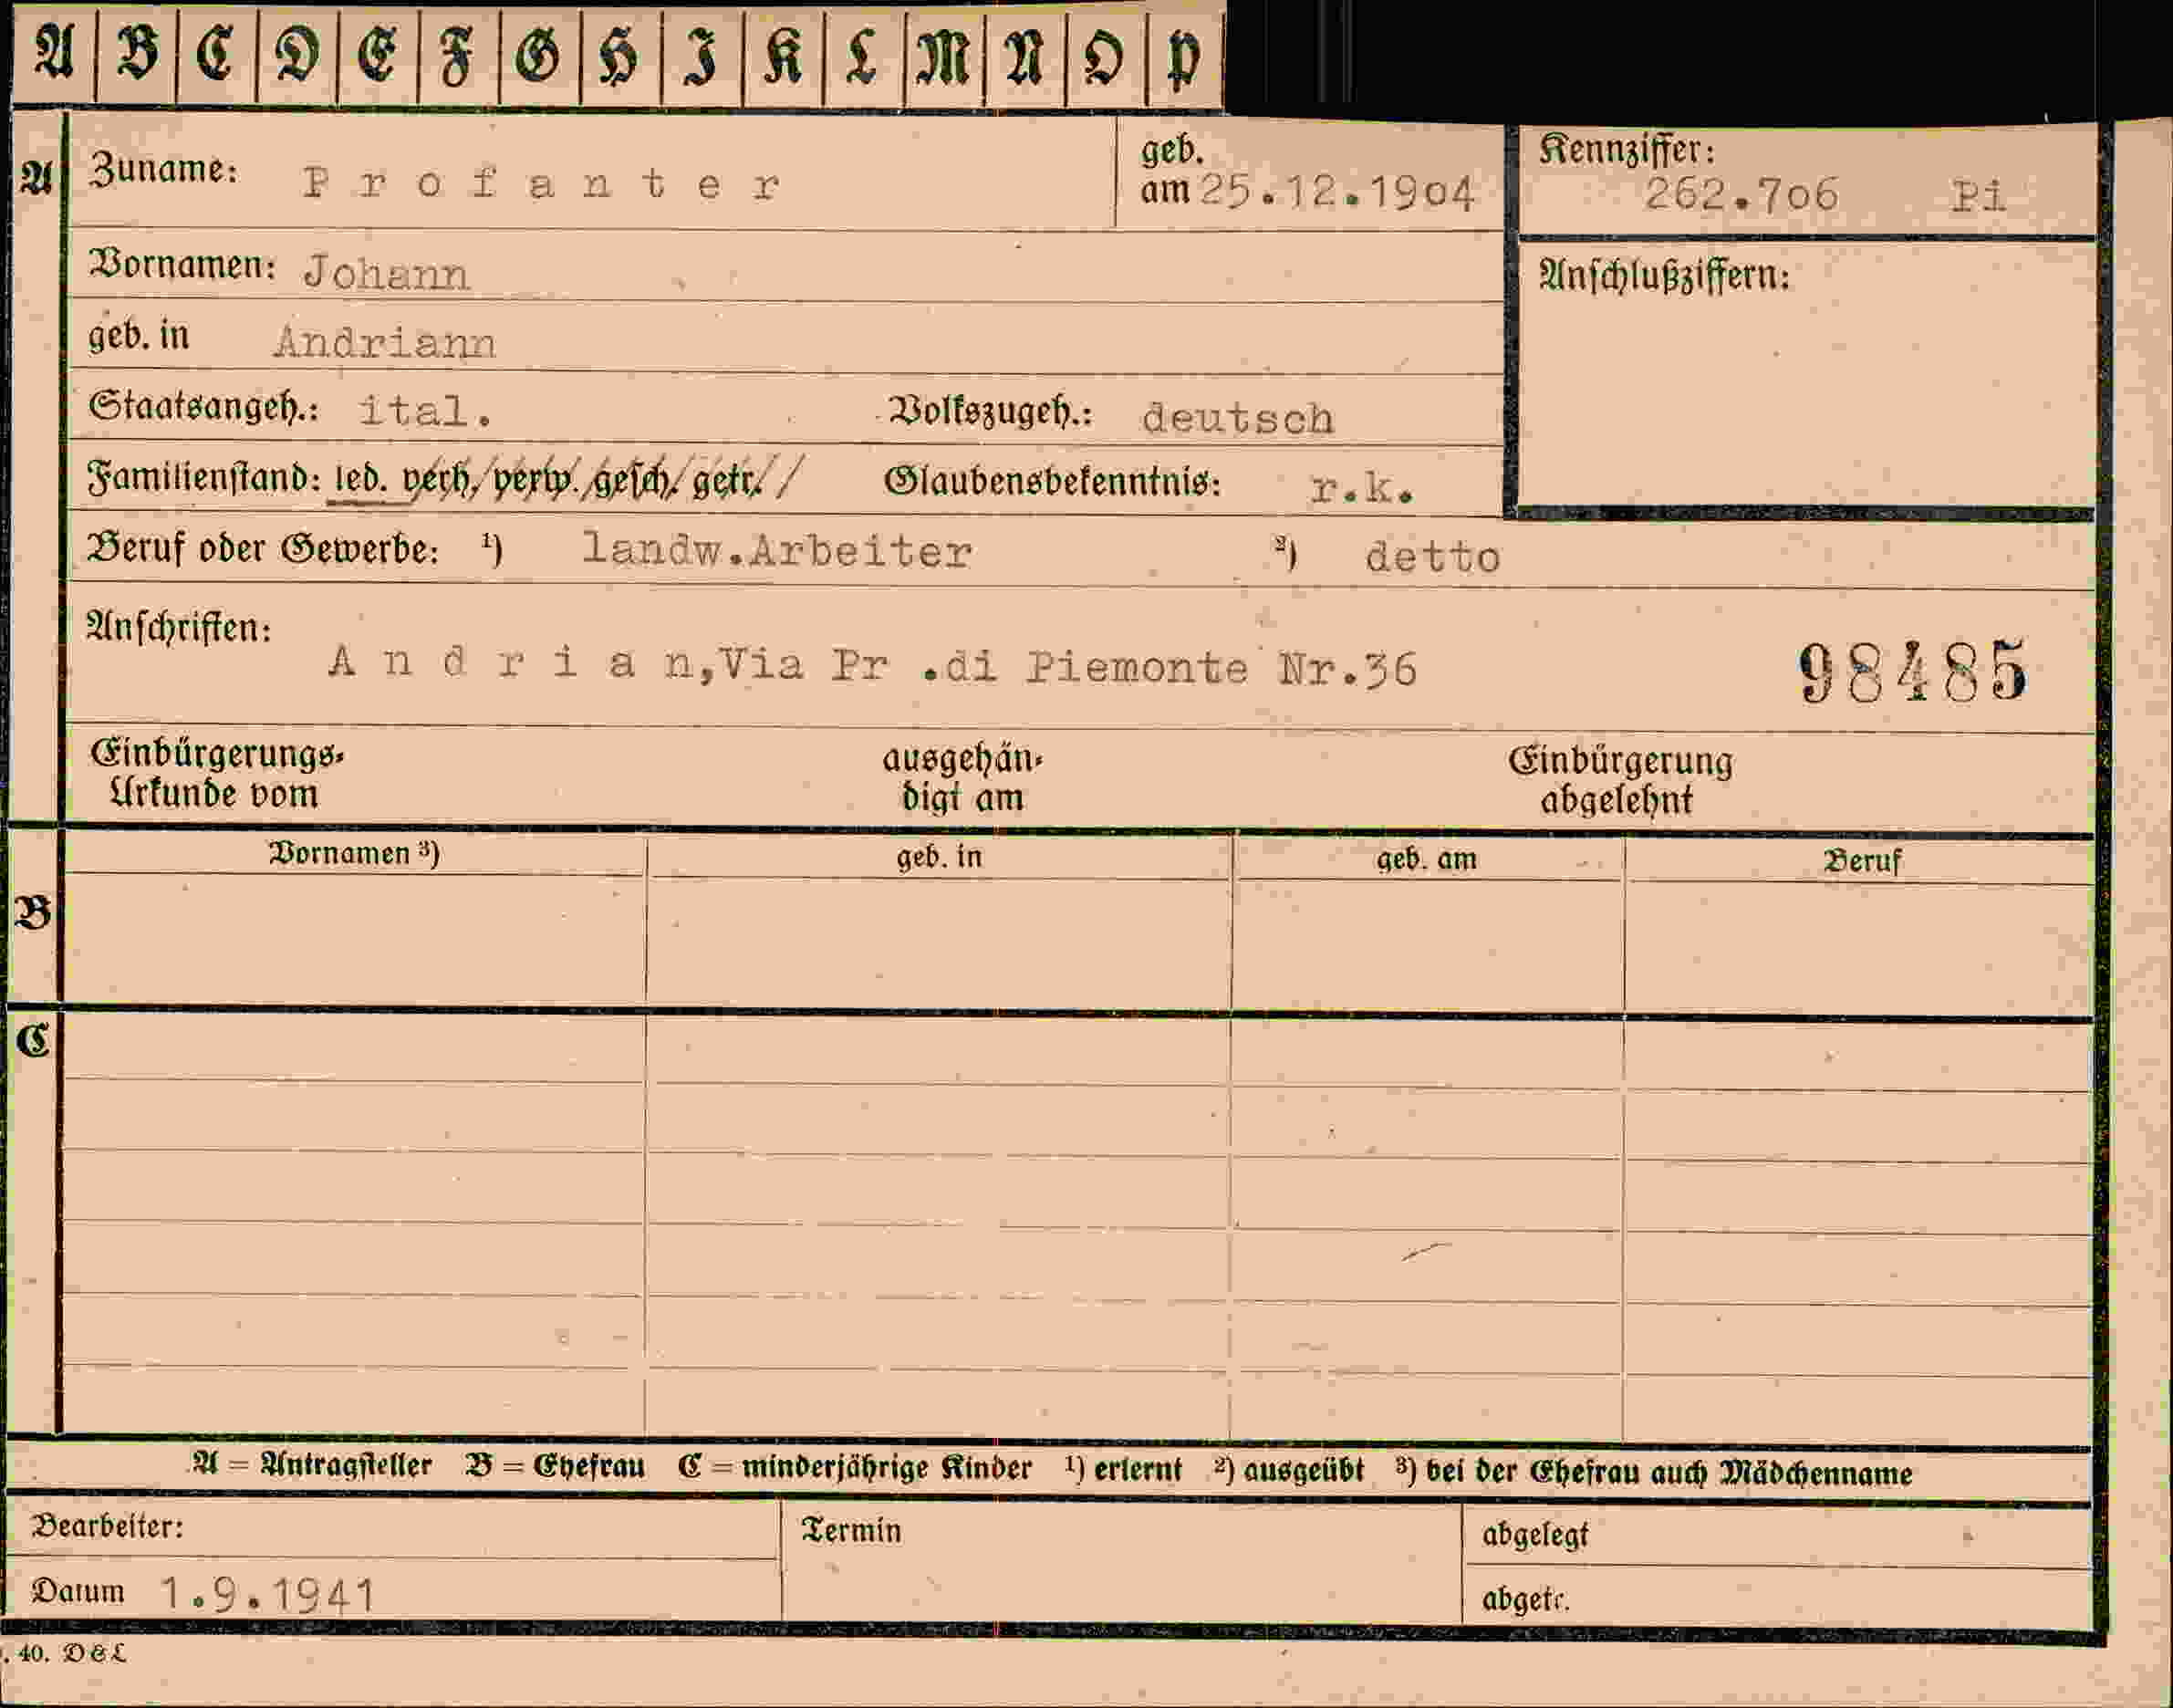 A B C D E F G H I K L M N O P
A Zuname: Profanter geb. am 25.12.1904 Kennziffer: 262.706 Pi
Vornamen: Johann Anschlußziffern:
geb. in Andriann
Staatsangeh.: ital. Volkszugeh.: deutsch
Familienstand: led. verh. verw. gesch. getr. Glaubensbekenntnis: r.k.
Beruf oder Gewerbe: ¹) landw.Arbeiter ²) detto
Anschriften: Andrian,Via Pr .di Piemonte Nr.36 98485
Einbürgerungs- ausgehän- Einbürgerung
Urkunde vom digt am abgelehnt
Vornamen ³) geb. in geb. am Beruf
B
C
A = Antragsteller B = Ehefrau C = minderjährige Kinder ¹) erlernt ²) ausgeübt ³) bei der Ehefrau auch Mädchenname
Bearbeiter: Termin abgelegt
Datum 1.9.1941 abgetr.
. 40. D & L